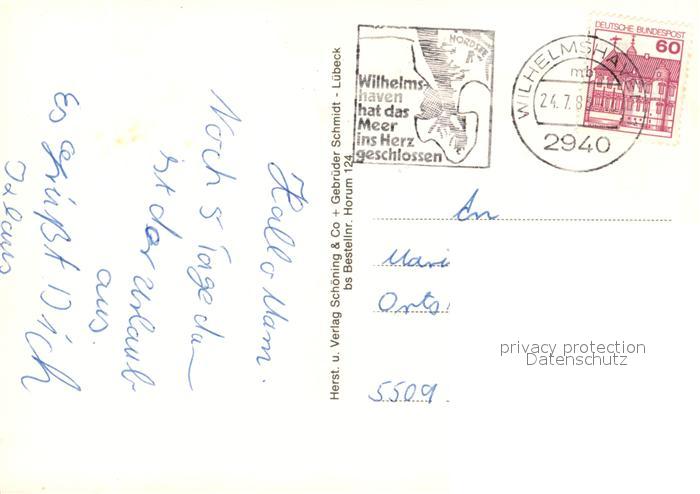 Hallo Mam.
Noch 5 Tage dan
ist der Urlaub
aus.
Es grüßt Dich
Klaus
Herst. u. Verlag Schöning & Co + Gebrüder Schmidt - Lübeck
bs Bestellnr. Horum 124
NORDSEE
Wilhelms-
haven
hat das
Meer
ins Herz
geschlossen
WILHELMSHAVEN
mb
24.7.8
2940
DEUTSCHE BUNDESPOST
60
An
Mari
Orts
5509.
privacy protection
Datenschutz